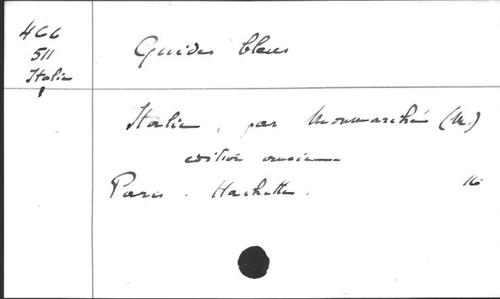 466
511
Italie
Guides bleus
Italie, par Monmarché (M.)
édition ancienne
Paris. Hachette. 16